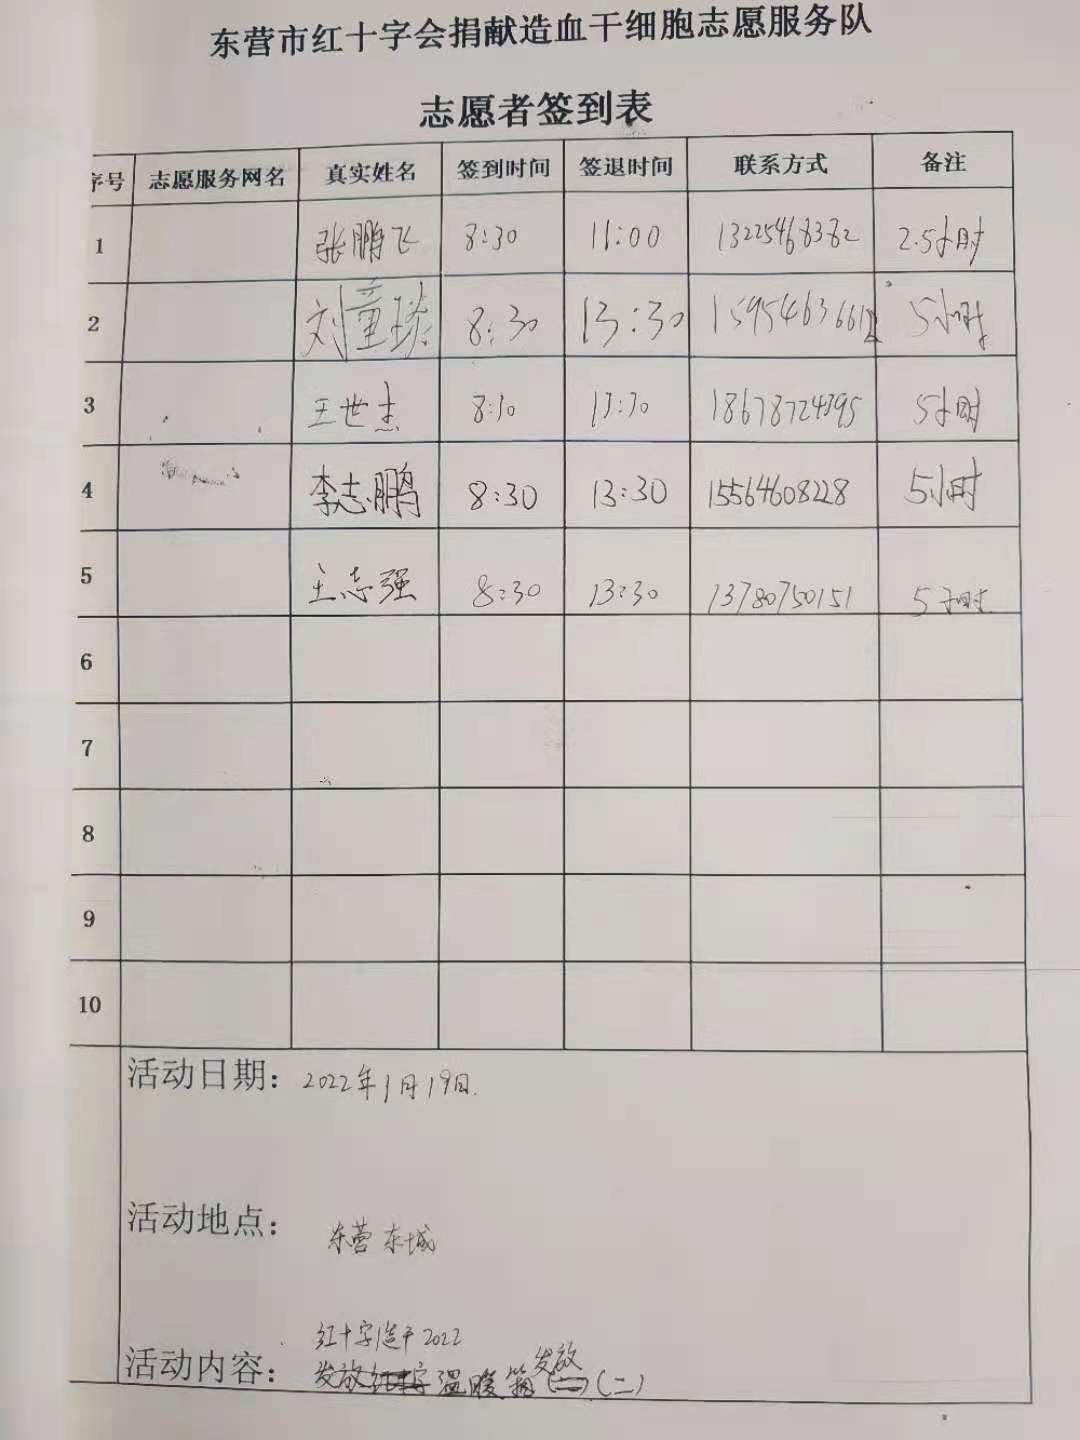 东营市红十字会捐献造血干细胞志愿服务队
志愿者签到表
序号 志愿服务网名 真实姓名 签到时间 签退时间 联系方式 备注
1 张鹏飞 8:30 11:00 13225468382 2.5小时
2 刘童琰 8:30 13:30 5小时
3 王世杰 8:30 13:30 18678724395 5小时
4 李志鹏 8:30 13:30 15564608228 5小时
5 王志强 8:30 13:30 13780750151 5小时
6
7
8
9
10
活动日期：2022年1月19日.
活动地点：东营东城
红十字造干2022
活动内容：发放红十字温暖箱发放(二)